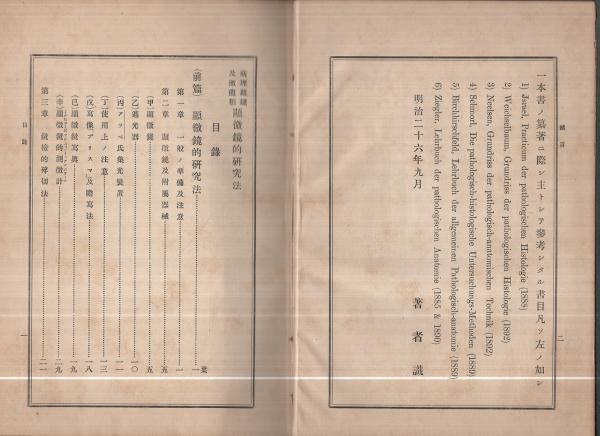 緒言
二
一本書ノ纂著ニ際シ主トシテ參考シタル書目凡ソ左ノ如シ
1) Jsruel, Practicum der pathologischen Histologie (1888)
2) Weichselbaum, Grundriss der pathologischen Histologie (1892)
3) Neelsen, Grundriss der pathologisch-anatomischen Technik (1892)
4) Schmorl, Die pathologisch-histologische Untersuchungs-Methoden (1889)
5) Birchhirschfeld, Lehrbuch der allgemeinen Pathologisch-anatomie (1889)
6) Ziegler, Lehrbuch der pathologischen Anatomie (1885 & 1890)
明治二十六年九月
著者識
病理組織
及黴菌類
顯微鏡的研究法
目錄
葉
(前篇) 顯微鏡的研究法 一
第一章 一般ノ準備及注意 一
第二章 顯微鏡及附屬器械 五
(甲) 顯微鏡 五
(乙) 遮光器 一〇
(丙) アツベ氏集光裝置 一一
(丁) 使用上ノ注意 一三
(戊) 寫像プリスマ及瞻寫法 一八
(己) 顯微鏡寫眞 一九
顯微鏡的測微計 二九
第三章 鏡檢的 切法 二一
目錄
一